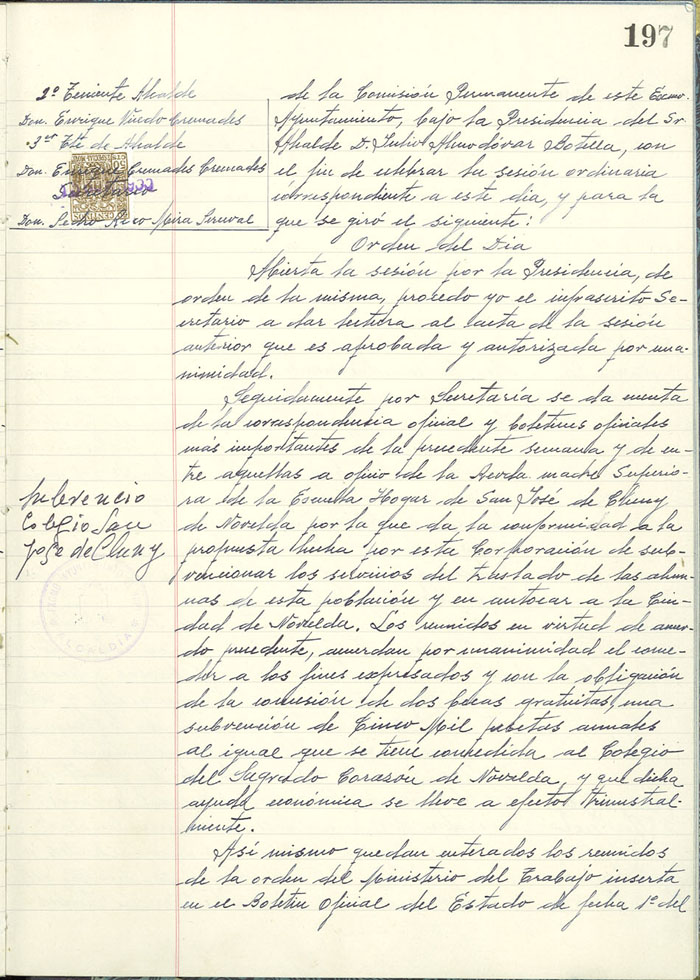 197
2º Teniente Alcalde
Don. Enrique Cremades
3er Tte de Alcalde
Don. Enrique Cremades Cremades
Secretario
Don. Pedro Rico Mira
de la Comisión Permanente de este Excmo
Ayuntamiento, bajo la Presidencia del Sr
Alcalde D. Julio Almodóvar Botella, con
el fin de celebrar la sesión ordinaria
correspondiente a este dia, y para la
que se giró el siguiente:
Orden del Dia
Abierta la sesión por la Presidencia, de
orden de la misma, procedo yo el infrascrito Se-
cretario a dar lectura al acta de la sesión
anterior que es aprobada y autorizada por una-
nimidad.
Seguidamente por Secretaría se da cuenta
de la correspondencia oficial y boletines oficiales
más importantes de la precedente semana y de en-
tre aquellas a oficio de la Revda madre Superio-
ra de la Escuela Hogar de San José de Cluny
de Novelda por la que da la conformidad a la
propuesta hecha por esta Corporación de sub-
vencionar los servicios del traslado de las alum-
nas de esta población y en autocar a la Ciu-
dad de Novelda. Los reunidos en virtud de acuer-
do precedente, acuerdan por unanimidad el conce-
der a los fines expresados y con la obligación
de la concesión de dos becas gratuitas, una
subvención de Cinco Mil pesetas anuales
al igual que se tiene concedida al Colegio
del Sagrado Corazón de Novelda, y que dicha
ayuda económica se lleve a efecto trimestral-
mente.
Así mismo quedan enterados los reunidos
de la orden del Ministerio del Trabajo inserta
en el Boletin Oficial del Estado de fecha 1º del
Subvencio
Colegio San
Jose de Cluny
ALCALDIA